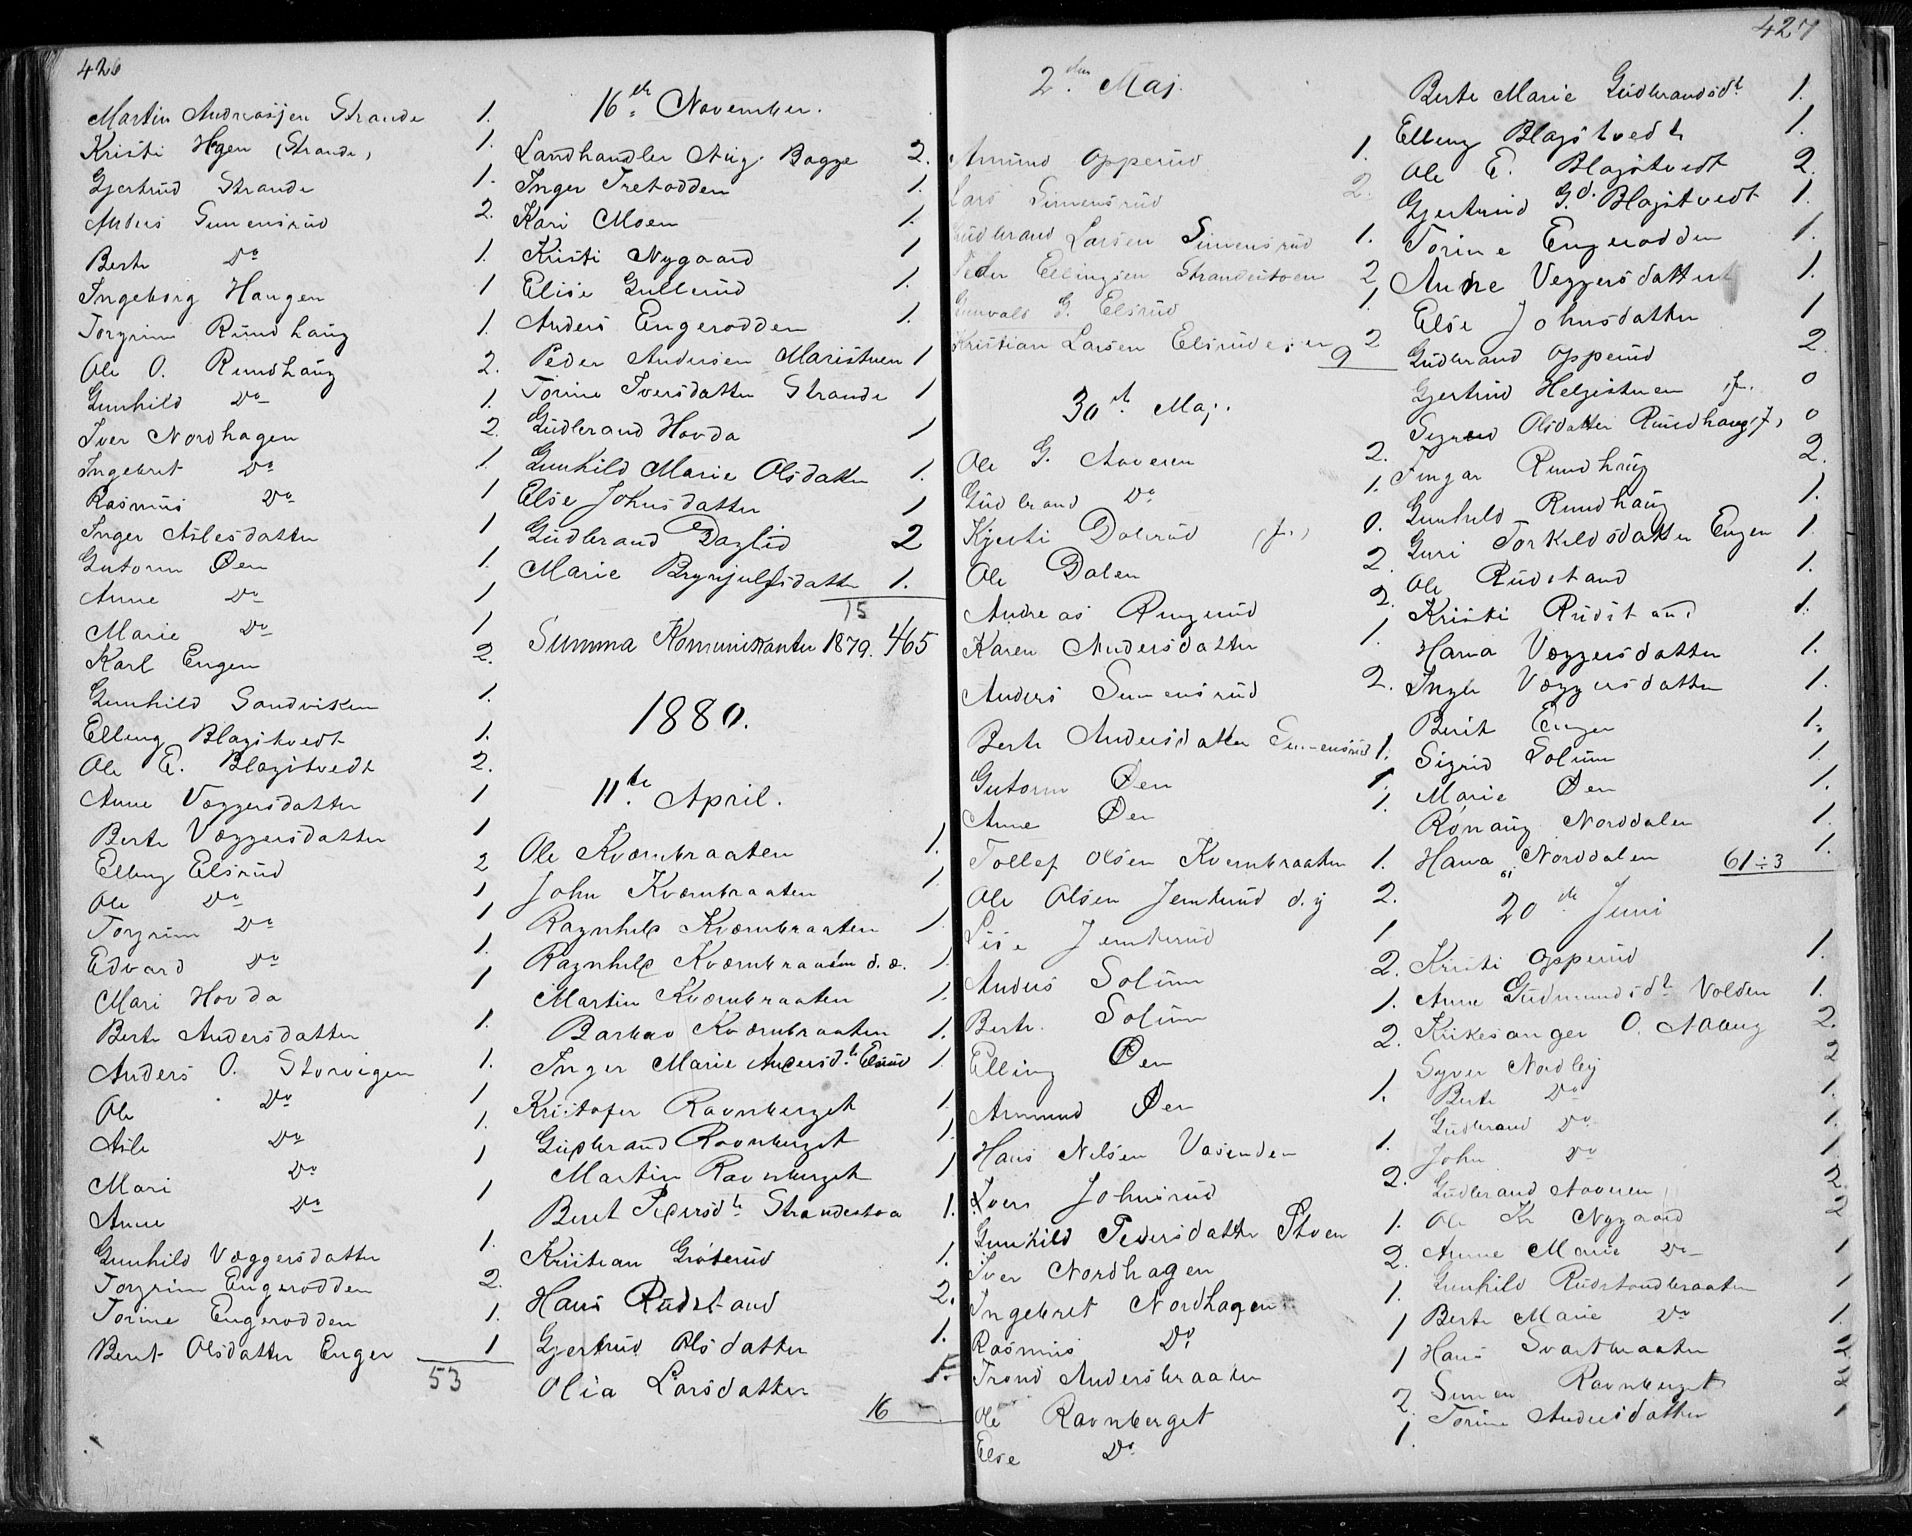 426
Martin Andreasjen Strande 1.
Kristi Hgen (Strande) 1.
Gjertrud Strande 1.
Anders Simensrud 2.
Berte Do 1.
Ingeborg Haugen 1
Torgrim Rundhaug 1.
Ole O. Rundhaug 2.
Gunhild Do 1.
Iver Nordhagen 2.
Ingebret Do 1.
Rasmus Do 1
Inger Aslesdatter 1
Gutorm Øen 1.
Anne Do 1
Marie Do 1
Karl Engen 2.
Gunhild Sandviken 1.
Elling Blagstvedt 1.
Ole E. Blagstvedt 2.
Anne Væggersdatter 1
Berte Væggersdatter 1
Elling Elsrud 2
Ole Do 1
Torgrim Do 1
Edvard Do 1.
Mari Hovda 1
Berte Andersdatter 1.
Anders O. Storvigen 1.
Ole Do 1
Asle Do 1.
Mari Do 1
Anne Do 1
Gunhild Væggersdatter 1.
Torgrim Engerodden 2.
Torine Engerodden 1.
Berit Olsdatter Enger 1
53
16th November.
Landhandler Aug. Bagge 2.
Inger Tretodden 1.
Kari Moen 1.
Kristi Nygaard 1
Elise Gullerud 1.
Anders Engerodden 1.
Peder Andersen Maristuen 1
Torine Iversdatter Strande 1
Gudbrand Hovda 1
Gunhild Marie Olsdatter 1.
Else Johnsdatter 1
Gudbrand Daglid 2
Marie Brynjulfsdatter 1.
15
Summa Komunikanter 1879. 465
1880.
11te April.
Ole Kværnbraaten 1.
John Kværnbraaten 1.
Ragnhild Kværnbraaten 1
Ragnhild Kværnbraaten d. æ. 1
Martin Kværnbraaten 1.
Barbao Kværnbraaten 1.
Inger Marie Andersdt Elsrud 1
Kristofer Ravnberget 1
Gudbrand Ravnberget 1.
Martin Ravnberget 1
Beret Pedersdt Strandestoa 1.
Kristian Grøterud 1.
Hans Rudstand 2.
Gjertrud Olsdatter 1.
Olia Larsdatter 1.
16
427
2den Maj.
Amund Opperud 1.
Lars Simensrud 2.
Gudbrand Larsen Simensrud 1.
Peder Ellingsen Strandestoen 2
Gunvald G. Elsrud 1
Kristian Larsen Elsrudeien 2
9
30te Maj.
Ole G. Aaveren 2.
Gudbrand Do 1.
Kjersti Dalerud (f.) 0.
Ole Dalen 2.
Andreas Ringerud 2.
Karen Andersdatter 1.
Anders Simensrud 2.
Berte Andersdatter Simensrud 1.
Gutorm Øen 1.
Anne Øen 1.
Tollef Olsen Kvernbraaten 1.
Ole Olsen Jemterud d. y 2.
Sise Jemterud 1
Anders Solum 2.
Berte Solum 1.
Elling Øen 2.
Ammund Øen 1.
Hans Nilsen Vasenden 1.
Iver Johnsrud 2.
Gunhild Pedersdatter Stuen 1.
Iver Nordhagen 2.
Ingebret Nordhagen 1.
Rasmus Do 1
Trond Andersbraaten 1
Ole Ravnberget 2.
Else Do 1.
Berte Marie Gudbrandsdt 1.
Elling Blagstvedt 1.
Ole E. Blagstvedt 2.
Gjertrud G.d. Blagstvedt 1.
Torine Engerodden 1.
Anne Veggersdatter 1.
Else Johnsdatter 1
Gudbrand Opperud 2.
Gjertrud Helgestuen f. 0
Sigrid Olsdatter Rundhaug f. 0
Ingar Rundhaug 2.
Gunhild Rundhaug 1.
Guri Torkildsdatter Engen 1
Ole Rudstand 1.
Kristi Rudstand 1.
Hanna Væggersdatter 1.
Ingb Væggersdatter 1.
Berit Enger 1.
Sigrid Solum 1.
Marie Øen 1.
Rønaug Norddalen 1.
Hanna Norddalen 1.
61÷3
61
20de Juni
Kristi Opperud 1.
Anne Gudmundsdt Volden 1.
Kirkesanger O. Moberg 2.
Syver Nordby 2
Berte Do 1.
Gudbrand Do 1.
John Do 1
Gudbrand Aaveren 2
Ole Kr Nygaard 2
Anne Marie Do 1
Gunhild Rudstandbraaten 1
Berte Marie Do 1.
Hans Svartbraaten 2
Simen Ravnberget 2
Torine Andersdatter 1